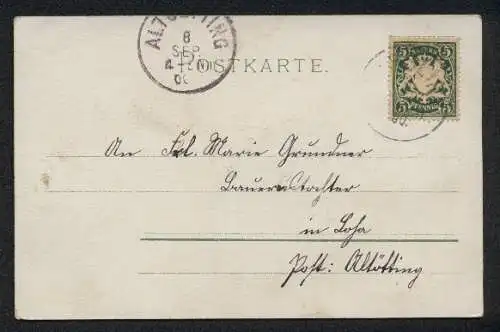 ALTOETTING
8
SEP.
POSTKARTE.
5 5
5 PFENNIG 5
An Frl. Marie Grundner
Bauerstochter
in Loha
Post: Altötting